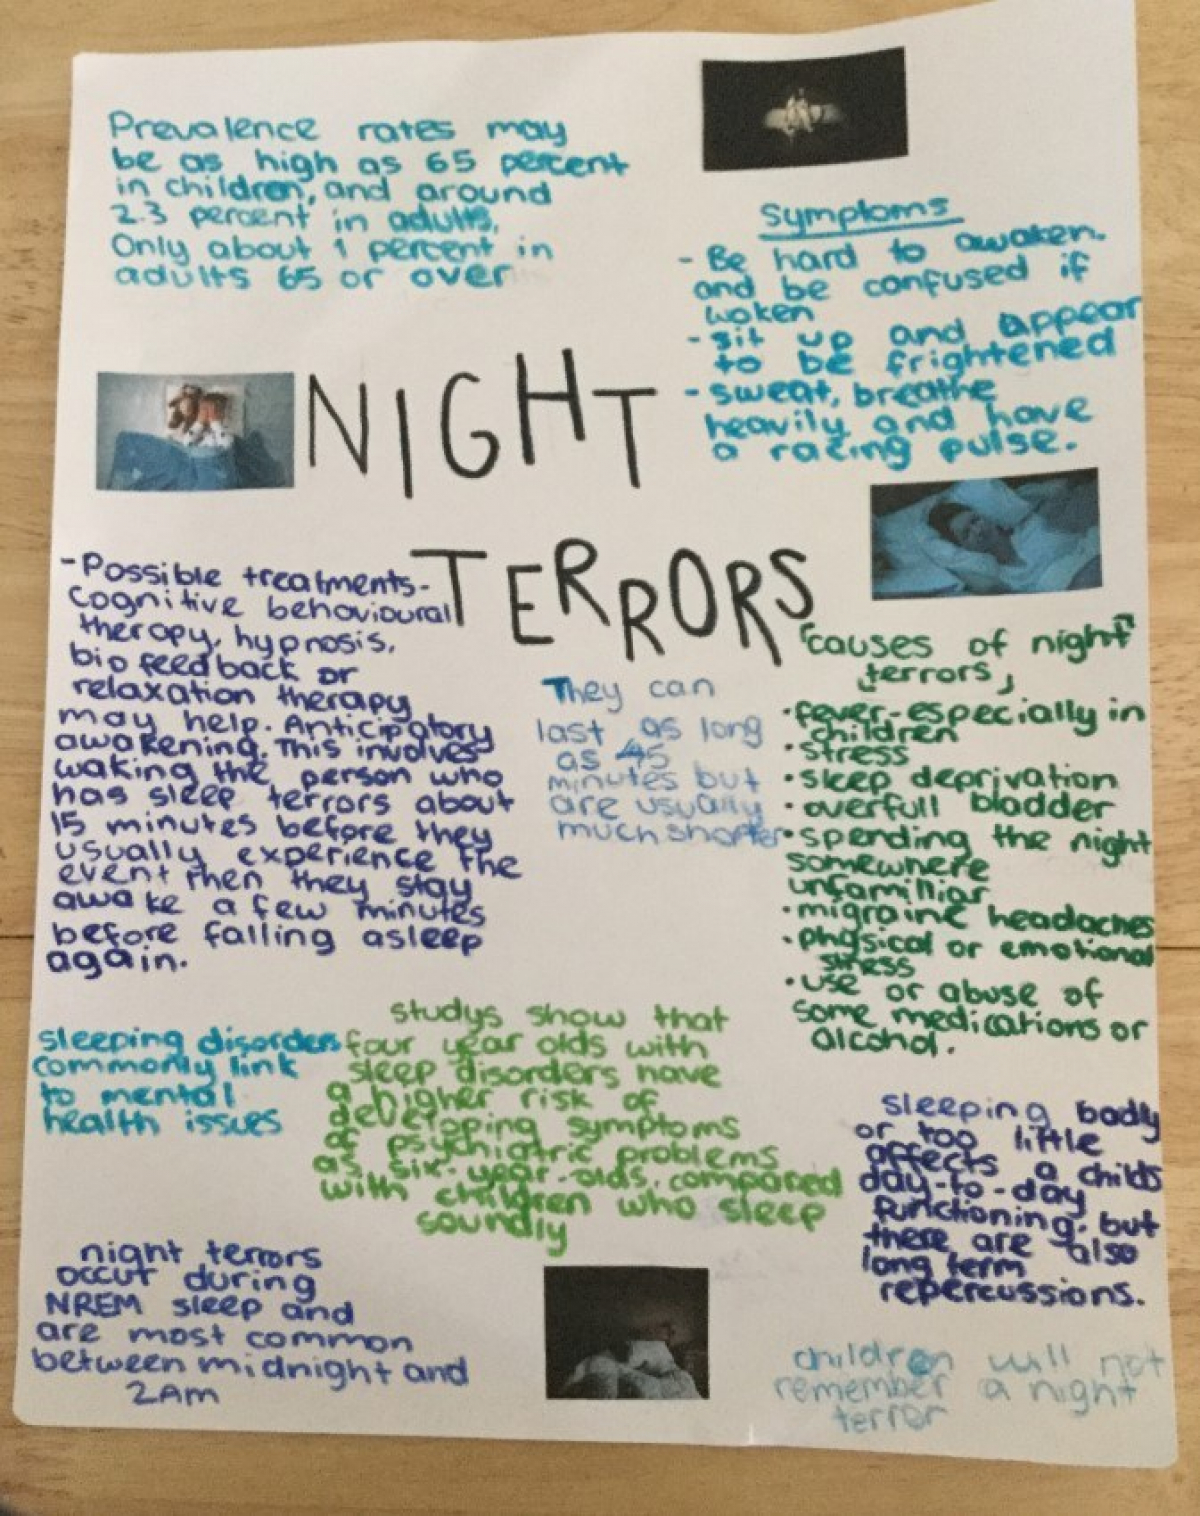 Prevalence rates may
be as high as 65 percent
in children, and around
2.3 percent in adults.
Only about 1 percent in
adults 65 or over
Symptoms
- Be hard to awaken.
and be confused if
woken
- sit up and appear
to be frightened
- sweat, breathe
heavily and have
a racing pulse.
NIGHT
TERRORS
- Possible treatments-
Cognitive behavioural
therapy, hypnosis,
bio feedback or
relaxation therapy
may help. Anticipatory
awakening. This involves
waking the person who
has sleep terrors about
15 minutes before they
usually experience the
event then they stay
awake a few minutes
before falling asleep
again.
They can
last as long
as 45
minutes but
are usually
much shorter
"causes of night"
terrors
• fever-especially in
children
• stress
• sleep deprivation
• overfull bladder
• spending the night
somewhere
unfamilliar
• migraine headaches
• physical or emotional
stress
• use or abuse of
some medications or
alcohol.
sleeping disorders
commonly link
to mental
health issues
studys show that
four year olds with
sleep disorders have
a higher risk of
developing symptoms
of psychiatric problems
as six-year-olds, compared
with children who sleep
soundly
sleeping badly
or too little
affects a childs
day-to-day
functioning, but
there are also
long term
repercussions.
night terrors
occur during
NREM sleep and
are most common
between midnight and
2AM
children will not
remember a night
terror